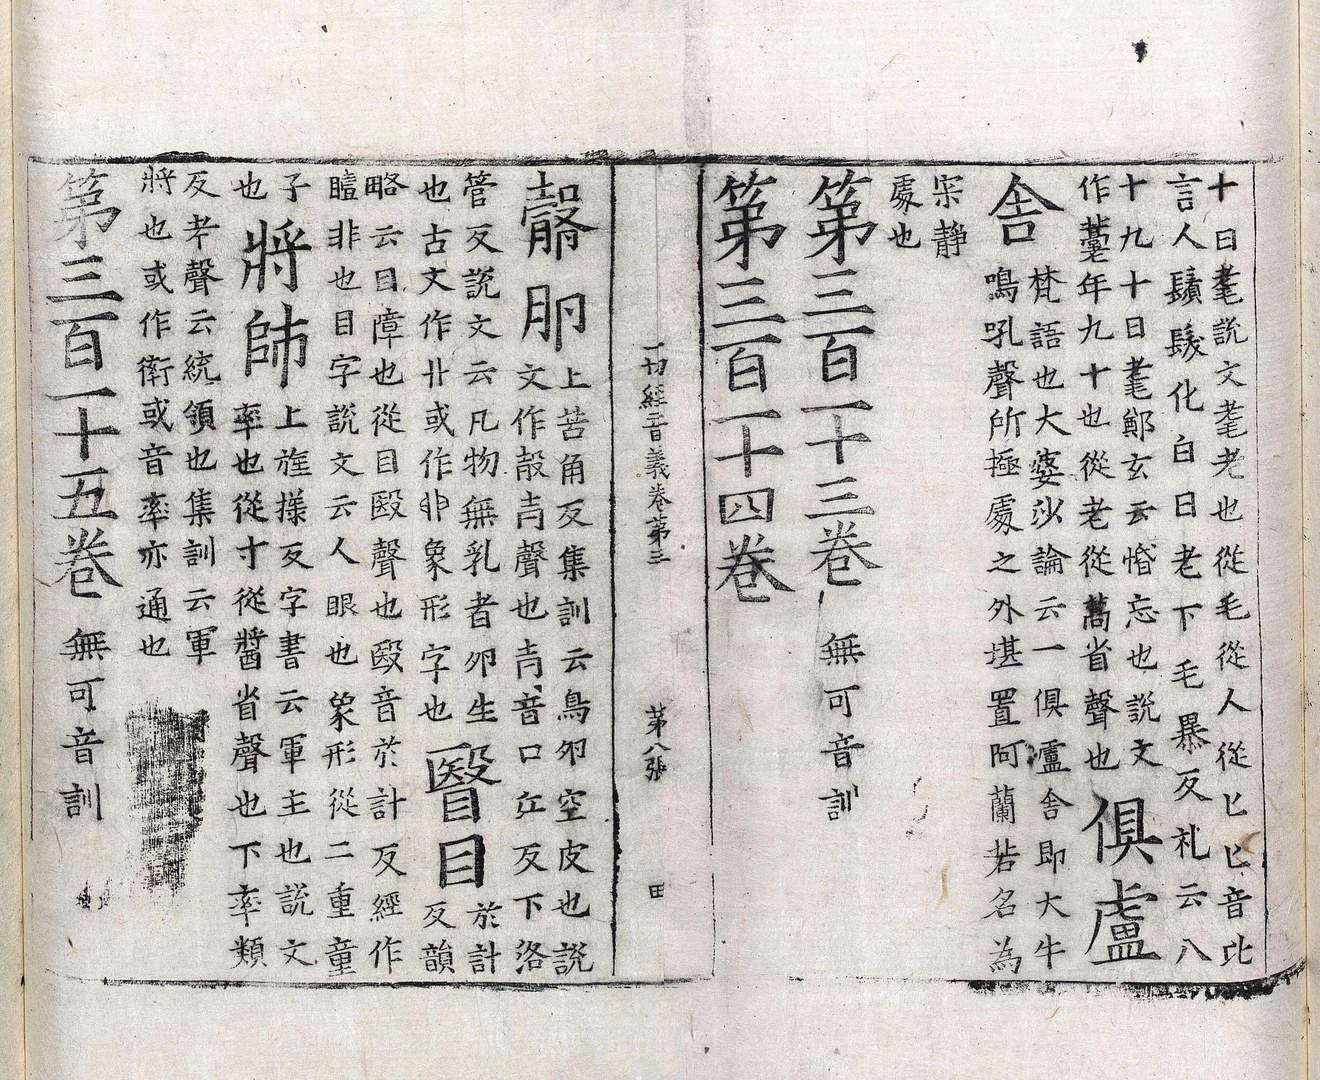 十曰耄說文耄老也從毛從人從匕匕音比
言人鬚髮化白曰老下毛暴反礼云八
十九十曰耄鄭玄云惛忘也說文
作薹年九十也從老從蒿省聲也俱盧
舍梵語也大婆沙論云一俱盧舍即大牛
鳴吼聲所極處之外堪置阿蘭若名為
寂靜
處也
第三百一十三卷無可音訓
第三百一十四卷
一切經音義卷第三 第八張 田
㲉卵上苦角反集訓云鳥卵空皮也說
文作㱿声也音口江反下洛
管反說文云凡物無乳者卵生
也古文作卝或作卵象形字也瞖目於計反韻
略云目障也從目殹聲也殹音於計反經作
瞳非也目字說文云人眼也象形從二重童
子
也將帥上旌樣反字書云軍主也說文
率也從寸從醬省聲也下率類
反考聲云統領也集訓云軍
將也或作衛或音率亦通也
第三百一十五卷無可音訓